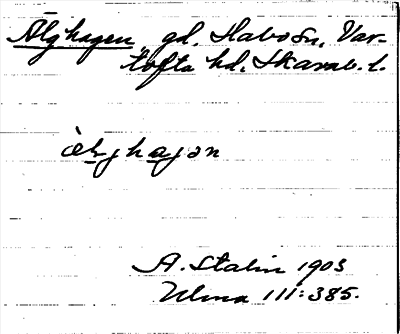 Älghagen gd. Habo sn, Var-
tofta hd. Skarab. l.
æ̀lghagən
A. Stalin 1903
Ulma 111:385.